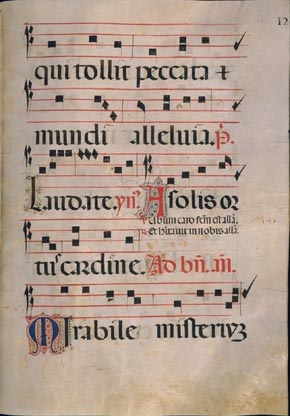 12
qui tollit peccata
mundi alleluia. p̄s.
Laudate. ym̄. A solis or
Verbum caro fctm̄ est alla.
Et hitavit in nobis alla.
tus cardine. Ad bn̄. an̄.
Mirabile misterium